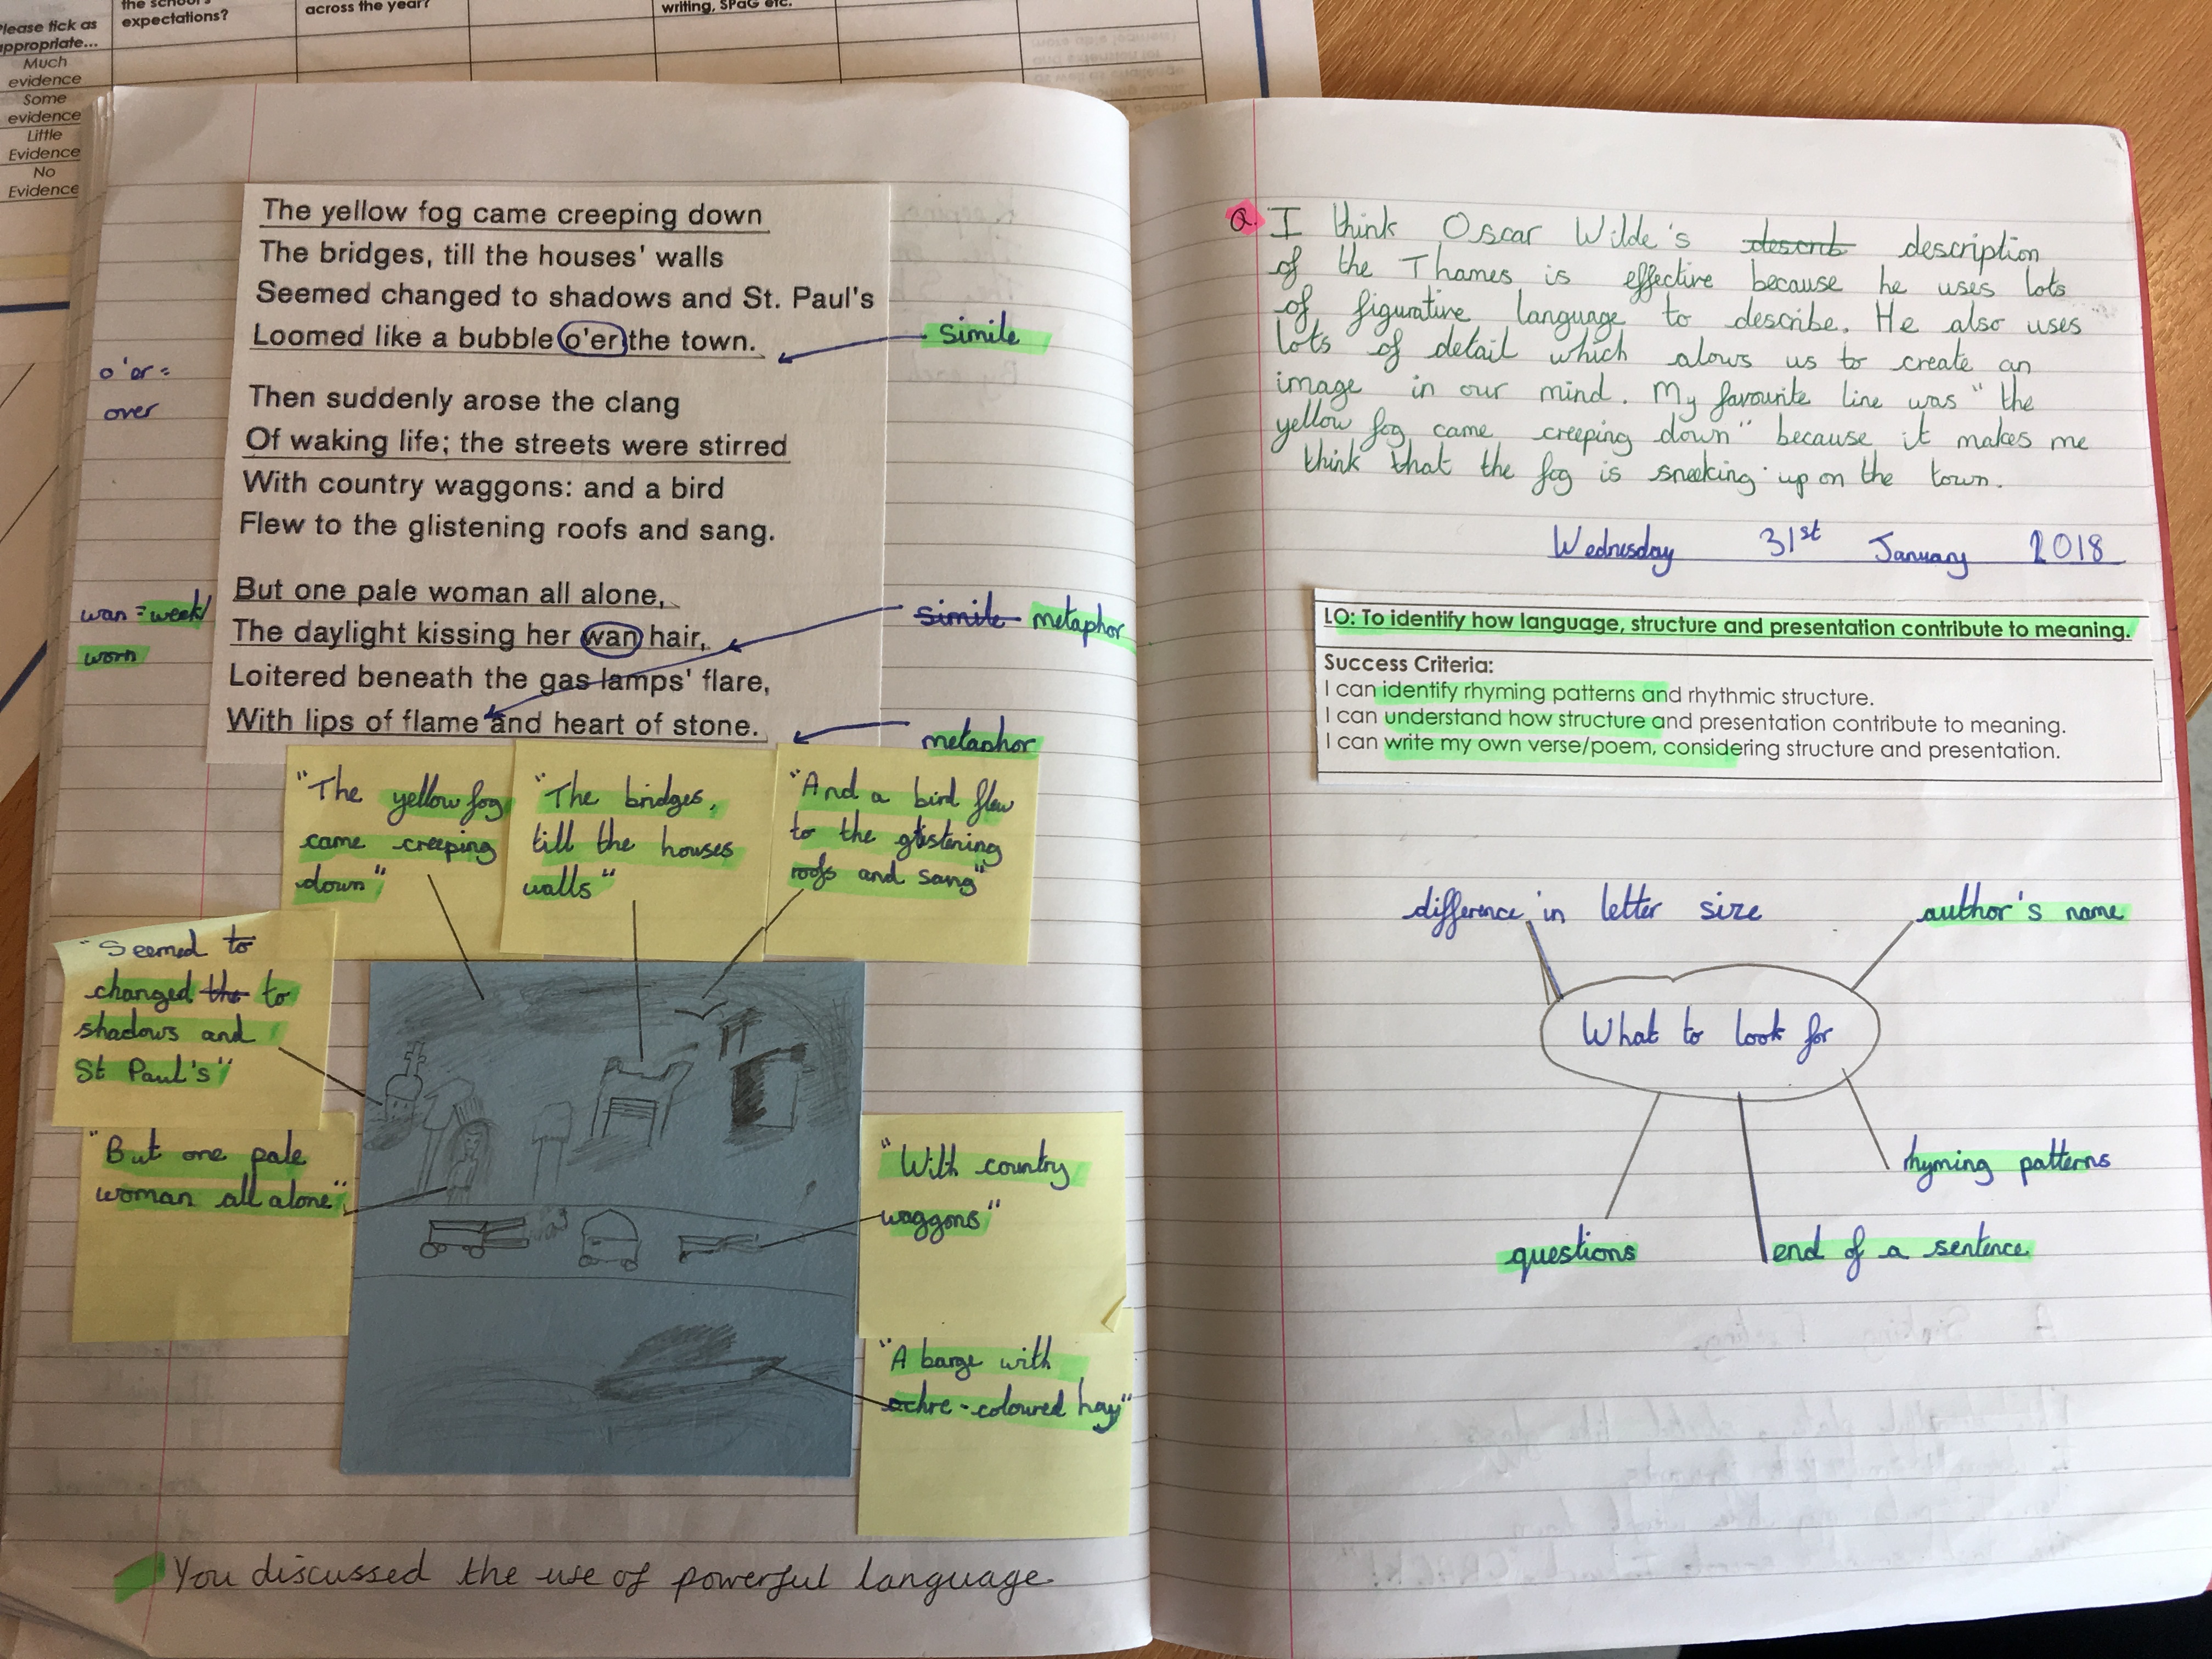 the school's
expectations?
across the year?
writing, SPaG etc.
Please tick as
appropriate...
Much
evidence
Some
evidence
Little
Evidence
No
Evidence
The yellow fog came creeping down
The bridges, till the houses' walls
Seemed changed to shadows and St. Paul's
Loomed like a bubble o'er the town.
simile
o'er =
over
Then suddenly arose the clang
Of waking life; the streets were stirred
With country waggons: and a bird
Flew to the glistening roofs and sang.
But one pale woman all alone,
The daylight kissing her wan hair,
Loitered beneath the gas lamps' flare,
With lips of flame and heart of stone.
wan = week/
worn
simile metaphor
metaphor
"The yellow fog
came creeping
down"
"The bridges,
till the houses
walls"
"And a bird flew
to the glistening
roofs and sang"
"Seemed to
changed the to
shadows and
St Paul's"
"But one pale
woman all alone"
"With country
waggons"
"A barge with
ochre-coloured hay"
You discussed the use of powerful language.
Q. I think Oscar Wilde's describ description
of the Thames is effective because he uses lots
of figurative language to describe. He also uses
lots of detail which alows us to create an
image in our mind. My favourite line was "the
yellow fog came creeping down" because it makes me
think that the fog is sneeking up on the town.
Wednesday 31st January 2018
LO: To identify how language, structure and presentation contribute to meaning.
Success Criteria:
I can identify rhyming patterns and rhythmic structure.
I can understand how structure and presentation contribute to meaning.
I can write my own verse/poem, considering structure and presentation.
difference in letter size
author's name
What to look for
rhyming patterns
questions
end of a sentence